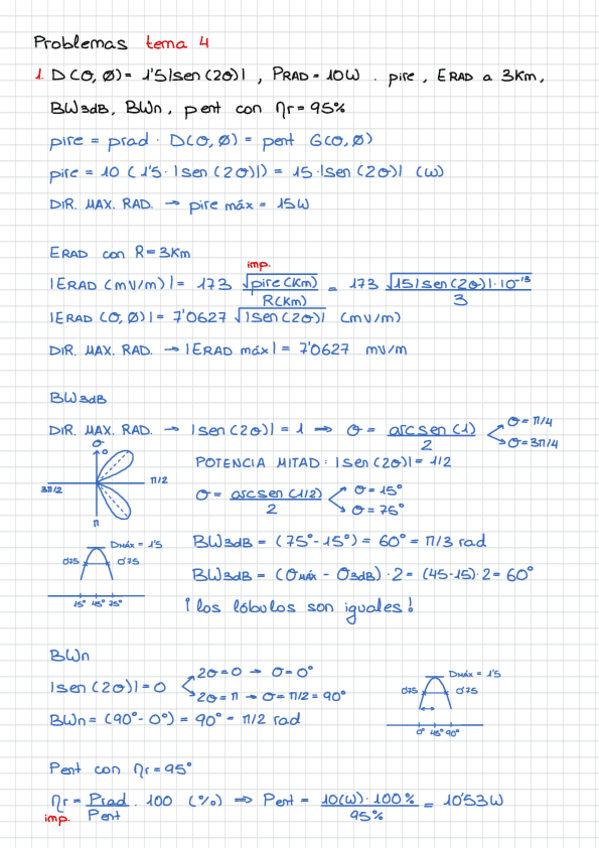 Problemas tema 4
1. D(Θ, Ø) = 1'5|sen(2Θ)| , PRAD = 10W . pire , ERAD a 3Km,
BW3dB, BWn, pent con ηr = 95%
pire = prad · D(Θ, Ø) = pent G(Θ, Ø)
pire = 10 (1'5 · |sen(2Θ)|) = 15·|sen(2Θ)| (W)
DIR. MAX. RAD. → pire máx = 15W
ERAD con R = 3Km
imp.
|ERAD (mV/m)| = 173 √pire(KW) / R(Km) = 173 √15|sen(2Θ)|·10⁻³ / 3
|ERAD (Θ, Ø)| = 7'0627 √|sen(2Θ)| (mV/m)
DIR. MAX. RAD. → |ERAD máx| = 7'0627 mV/m
BW3dB
DIR. MAX. RAD. → |sen(2Θ)| = 1 ⇒ Θ = arcsen(1) / 2 Θ = π/4
Θ = 3π/4
Θ
0
3π/2 π/2
π
POTENCIA MITAD: |sen(2Θ)| = 1/2
Θ = arcsen(1/2) / 2 Θ = 15°
Θ = 75°
Dmáx = 1'5
0'75 0'75
15° 45° 75°
BW3dB = (75° - 15°) = 60° = π/3 rad
BW3dB = (Θmáx - Θ3dB)·2 = (45-15)·2 = 60°
¡los lóbulos son iguales!
BWn
|sen(2Θ)| = 0 2Θ = 0 → Θ = 0°
2Θ = π → Θ = π/2 = 90°
BWn = (90° - 0°) = 90° = π/2 rad
Dmáx = 1'5
0'75 0'75
0° 45° 90°
Pent con ηr = 95°
ηr = Prad / Pent · 100 (%) ⇒ Pent = 10(W)·100% / 95% = 10'53W
imp.